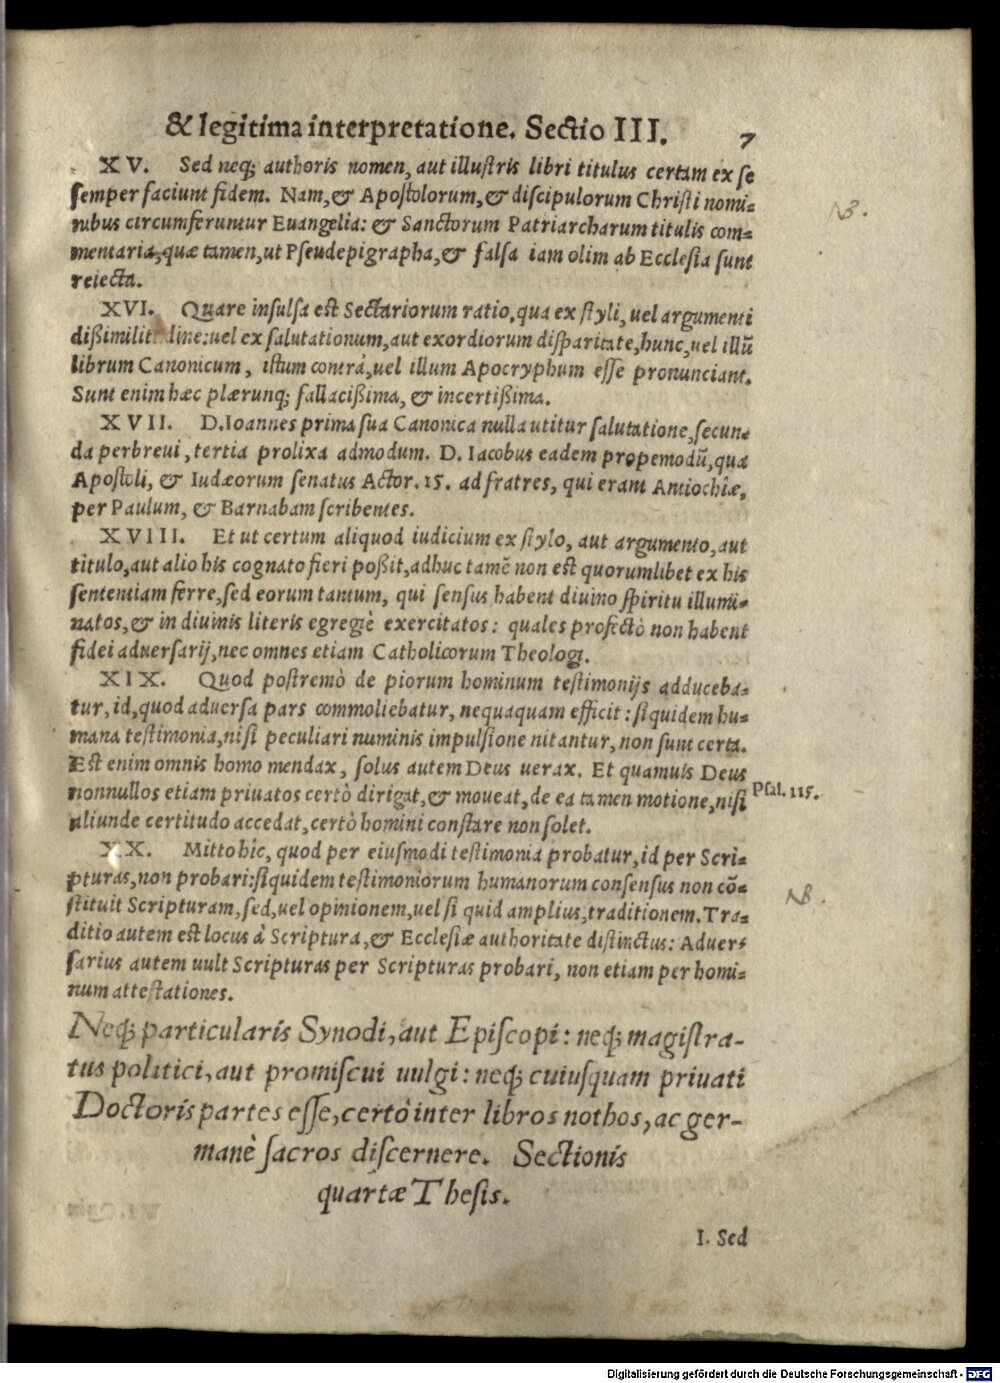 & legitima interpretatione. Sectio III. 7
XV. Sed neq; authoris nomen, aut illustris libri titulus certam ex se
semper faciunt fidem. Nam, & Apostolorum, & discipulorum Christi nomi=
nibus circumferuntur Euangelia: & Sanctorum Patriarcharum titulis com=
mentaria, quæ tamen, ut Pseudepigrapha, & falsa iam olim ab Ecclesia sunt
reiecta.
NB.
XVI. Quare insulsa est Sectariorum ratio, qua ex styli, uel argumenti
dißimilit dine: uel ex salutationum, aut exordiorum disparitate, hunc, uel illũ
librum Canonicum, istum contrà, uel illum Apocryphum esse pronunciant.
Sunt enim hæc plærunq; fallacißima, & incertißima.
XVII. D. Ioannes prima sua Canonica nulla utitur salutatione, secun=
da perbreui, tertia prolixa admodum. D. Iacobus eadem propemodũ, qua
Apostoli, & Iudæorum senatus Actor. 15. ad fratres, qui erant Antiochiæ,
per Paulum, & Barnabam scribentes.
XVIII. Et ut certum aliquod iudicium ex stylo, aut argumento, aut
titulo, aut alio his cognato fieri poßit, adhuc tamẽ non est quorumlibet ex his
sententiam ferre, sed eorum tantum, qui sensus habent diuino spiritu illumi=
natos, & in diuinis literis egregiè exercitatos: quales profectò non habent
fidei aduersarij, nec omnes etiam Catholicorum Theologi.
XIX. Quod postremò de piorum hominum testimonijs adduceba=
tur, id, quod aduersa pars commoliebatur, nequaquam efficit: siquidem hu=
mana testimonia, nisi peculiari numinis impulsione nitantur, non sunt certa.
Est enim omnis homo mendax, solus autem Deus uerax. Et quamuis Deus
nonnullos etiam priuatos certò dirigat, & moueat, de ea tamen motione, nisi
Psal. 115.
aliunde certitudo accedat, certò homini constare non solet.
XX. Mitto hic, quod per eiusmodi testimonia probatur, id per Scri=
pturas, non probari: siquidem testimoniorum humanorum consensus non cõ=
stituit Scripturam, sed, uel opinionem, uel si quid amplius, traditionem. Tra=
NB.
ditio autem est locus à Scriptura, & Ecclesiæ authoritate distinctus: Aduer=
sarius autem uult Scripturas per Scripturas probari, non etiam per homi=
num attestationes.
Neq; particularis Synodi, aut Episcopi: neq; magistra-
tus politici, aut promiscui uulgi: neq; cuiusquam priuati
Doctoris partes esse, certò inter libros nothos, ac ger-
manè sacros discernere. Sectionis
quartæ Thesis.
I. Sed
Digitalisierung gefördert durch die Deutsche Forschungsgemeinschaft - DFG